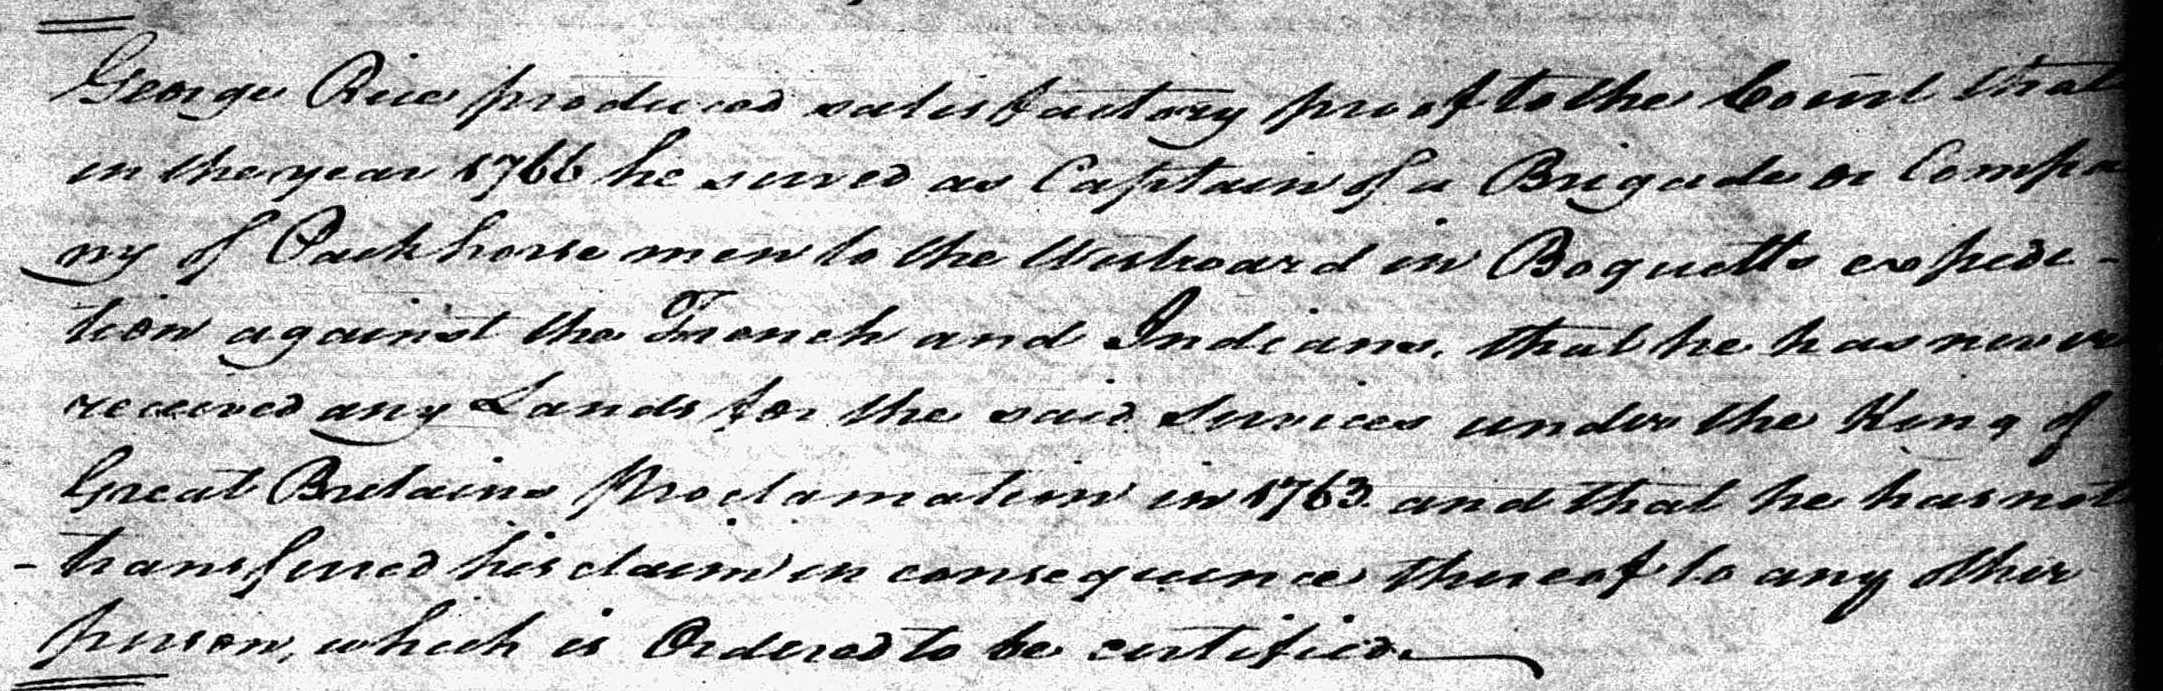 George Rice produced satisfactory proof to the Court that
in the year 1766 he served as Captain of a Brigade or Compa
ny of Packhorse men to the Westward in Boquetts expedi-
tion against the French and Indians, that he has never
received any Lands for the said Services under the King of
Great Britains Proclamation in 1763 and that he has not
-transferred his claim in consequence thereof to any other
person, which is Ordered to be certified.